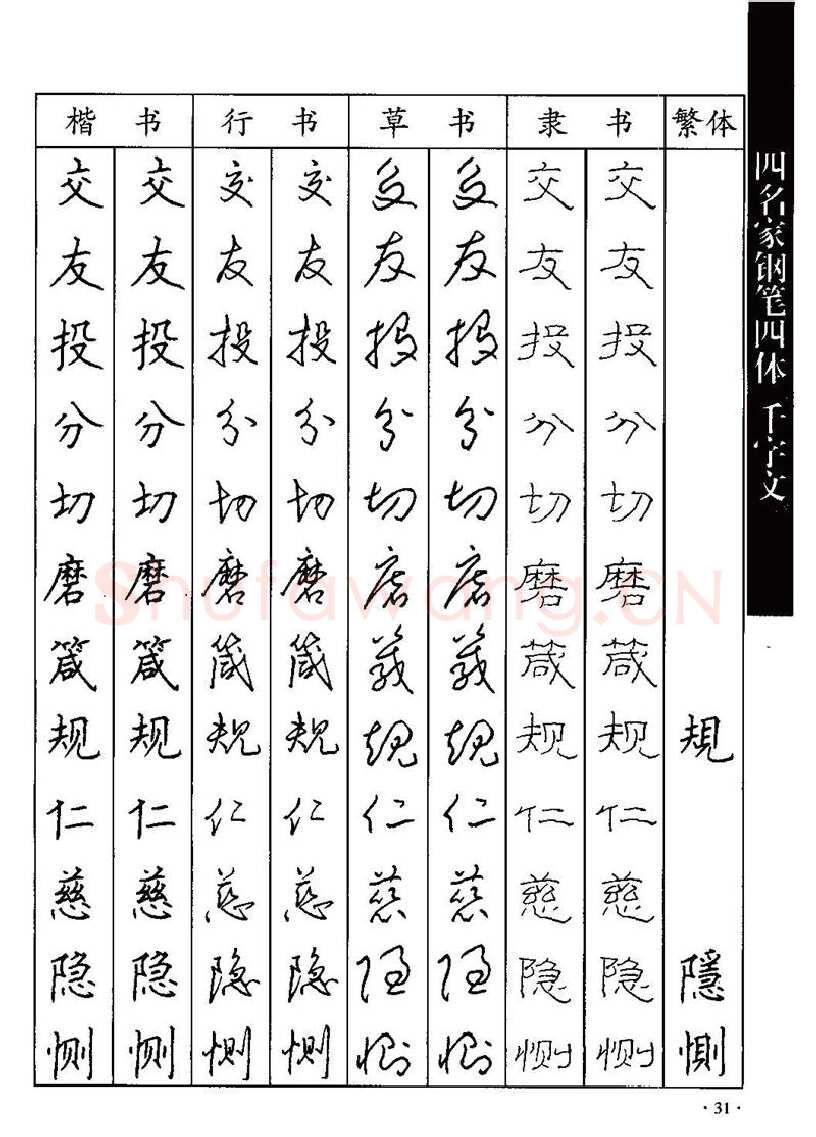 楷 书 行 书 草 书 隶 书 繁体
交 交 交 交 交 交 交 交
友 友 友 友 友 友 友 友
投 投 投 投 投 投 投 投
分 分 分 分 分 分 分 分
切 切 切 切 切 切 切 切
磨 磨 磨 磨 磨 磨 磨 磨
箴 箴 箴 箴 箴 箴 箴 箴
规 规 规 规 规 规 规 规 規
仁 仁 仁 仁 仁 仁 仁 仁
慈 慈 慈 慈 慈 慈 慈 慈
隐 隐 隐 隐 隐 隐 隐 隐 隱
恻 恻 恻 恻 恻 恻 恻 恻 惻
四名家钢笔四体 千字文
Shufawang.CN
·31·